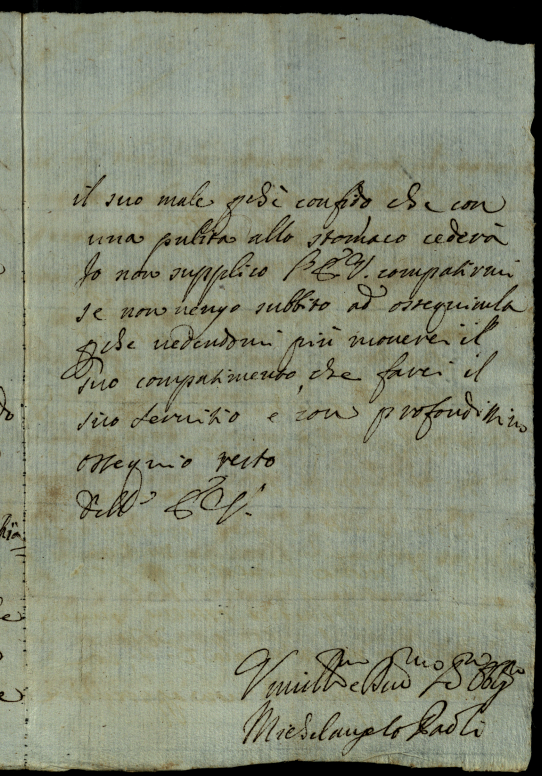 il suo male pchè confido che con
una pulita allo stomaco cederà
Io non supplico l'E V. compatirmi
se non vengo subbito ad ossequiarla
pche vedendomi più moverei il
suo compatimento, che farei il
suo servitio e con profondissimo
ossequio resto
Dell' E V.
Michelangelo Paoli